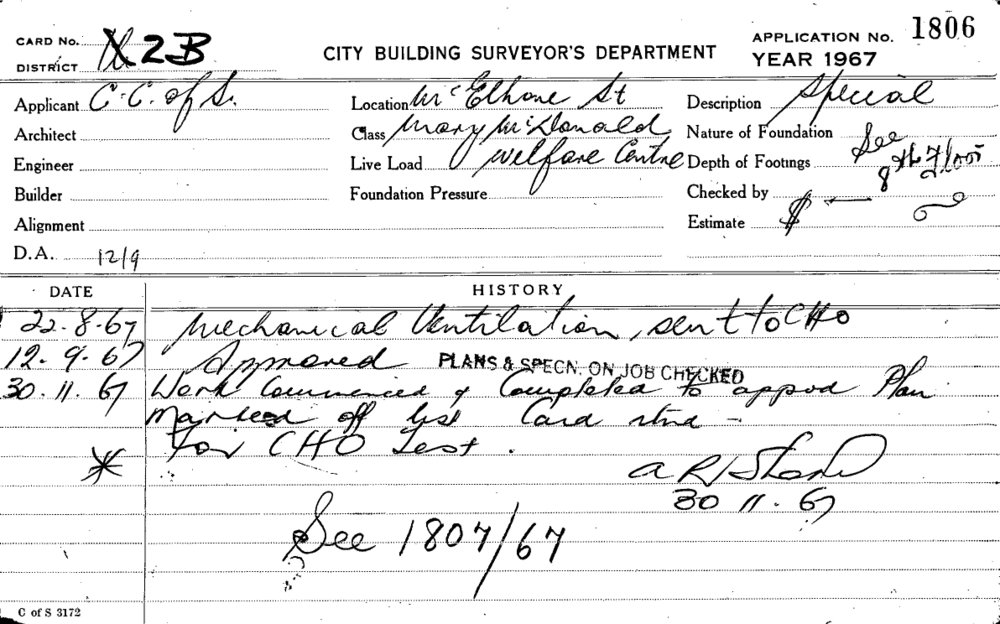 CARD No. 2B
DISTRICT
CITY BUILDING SURVEYOR'S DEPARTMENT
APPLICATION No. 1806
YEAR 1967
Applicant C.C. of S.
Location McElhone St
Description Special
Architect
Class Mary McDonald
Nature of Foundation See
Engineer
Live Load Welfare Centre
Depth of Footings 8th Floor
Builder
Foundation Pressure
Checked by
Alignment
Estimate $ —
D.A. 12/9
DATE HISTORY
22.8.67 Mechanical Ventilation, sent to CHO
12.9.67 Approved PLANS & SPECN. ON JOB CHECKED
30.11.67 Work Commenced & Completed to appvd Plan
Marked off list Card rtnd –
For CHO Test.
30 11. 67
See 1807/67
C of S 3172